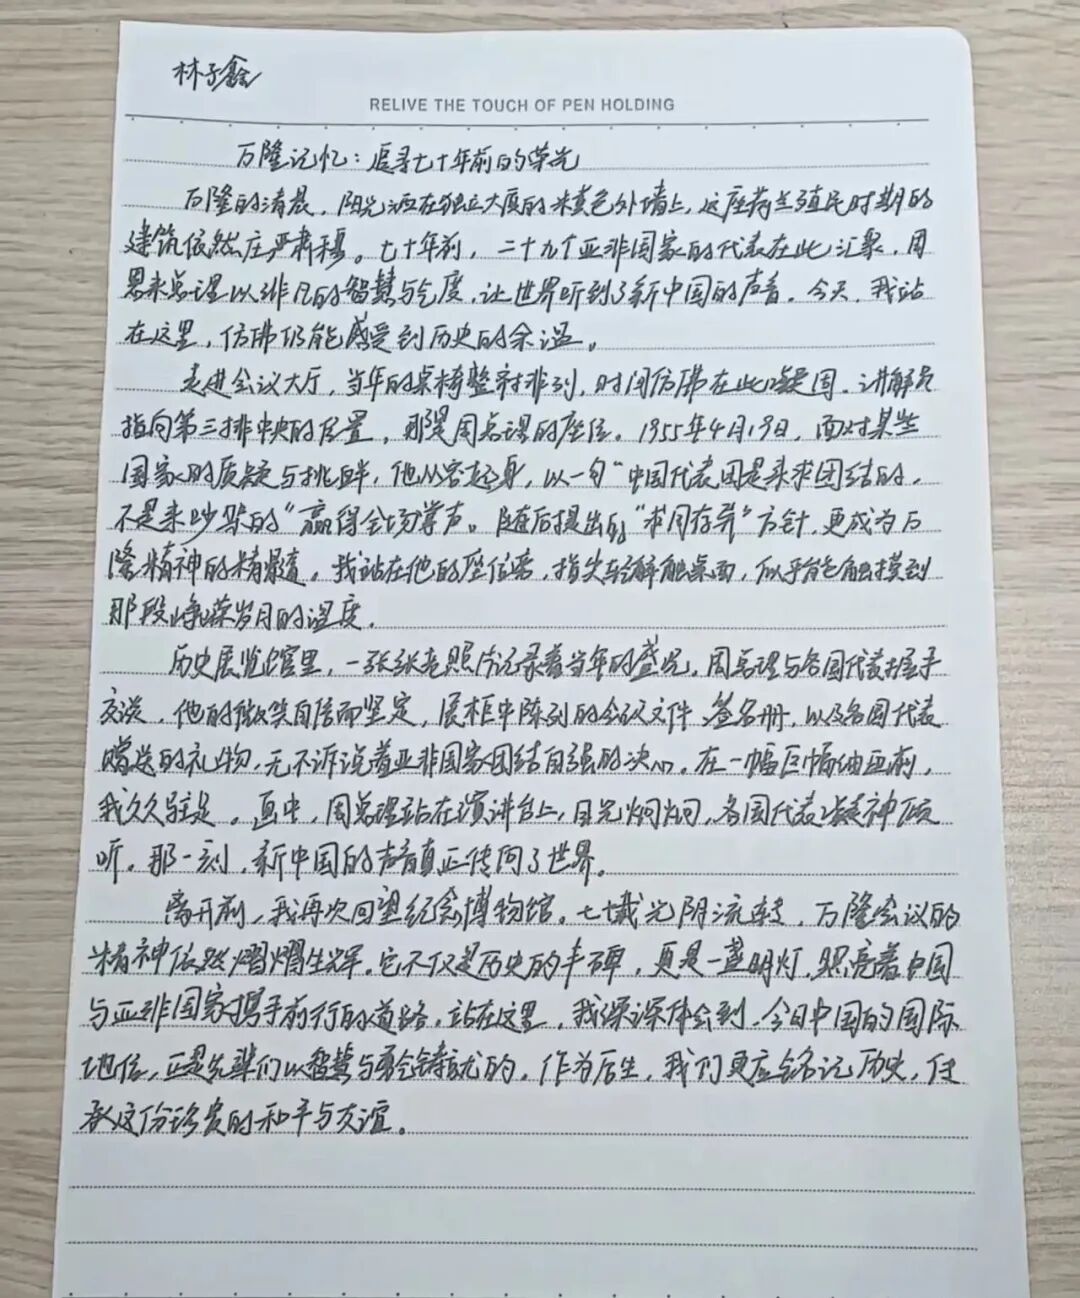 林子鑫
RELIVE THE TOUCH OF PEN HOLDING
万隆记忆：追寻七十年前的荣光
万隆的清晨，阳光洒在独立大厦的米黄色外墙上，这座荷兰殖民时期的
建筑依然庄严肃穆。七十年前，二十九个亚非国家的代表在此汇聚，周
恩来总理以非凡的智慧与气度，让世界听到了新中国的声音。今天，我站
在这里，仿佛仍能感受到历史的余温。
走进会议大厅，当年的桌椅整齐排列，时间仿佛在此凝固。讲解员
指向第三排中央的位置，那是周总理的座位。1955年4月19日，面对某些
国家的质疑与挑衅，他从容起身，以一句“中国代表团是来求团结的，
不是来吵架的”赢得全场掌声。随后提出的“求同存异”方针，更成为万
隆精神的精髓。我站在他的座位旁，指尖轻触桌面，似乎能触摸到
那段峥嵘岁月的温度。
历史展览馆里，一张张老照片记录着当年的盛况。周总理与各国代表握手
交谈，他的微笑自信而坚定，展柜中陈列的会议文件、签名册，以及各国代表
赠送的礼物，无不诉说着亚非国家团结自强的决心。在一幅巨幅油画前，
我久久驻足。画中，周总理站在演讲台上，目光炯炯，各国代表凝神倾
听。那一刻，新中国的声音真正传向了世界。
离开前，我再次回望纪念博物馆。七十载光阴流转，万隆会议的
精神依然熠熠生辉。它不仅是历史的丰碑，更是一盏明灯，照亮着中国
与亚非国家携手前行的道路。站在这里，我深深体会到，今日中国的国际
地位，正是先辈们以智慧与勇气铸就的。作为后生，我们更应铭记历史，传
承这份珍贵的和平与友谊。